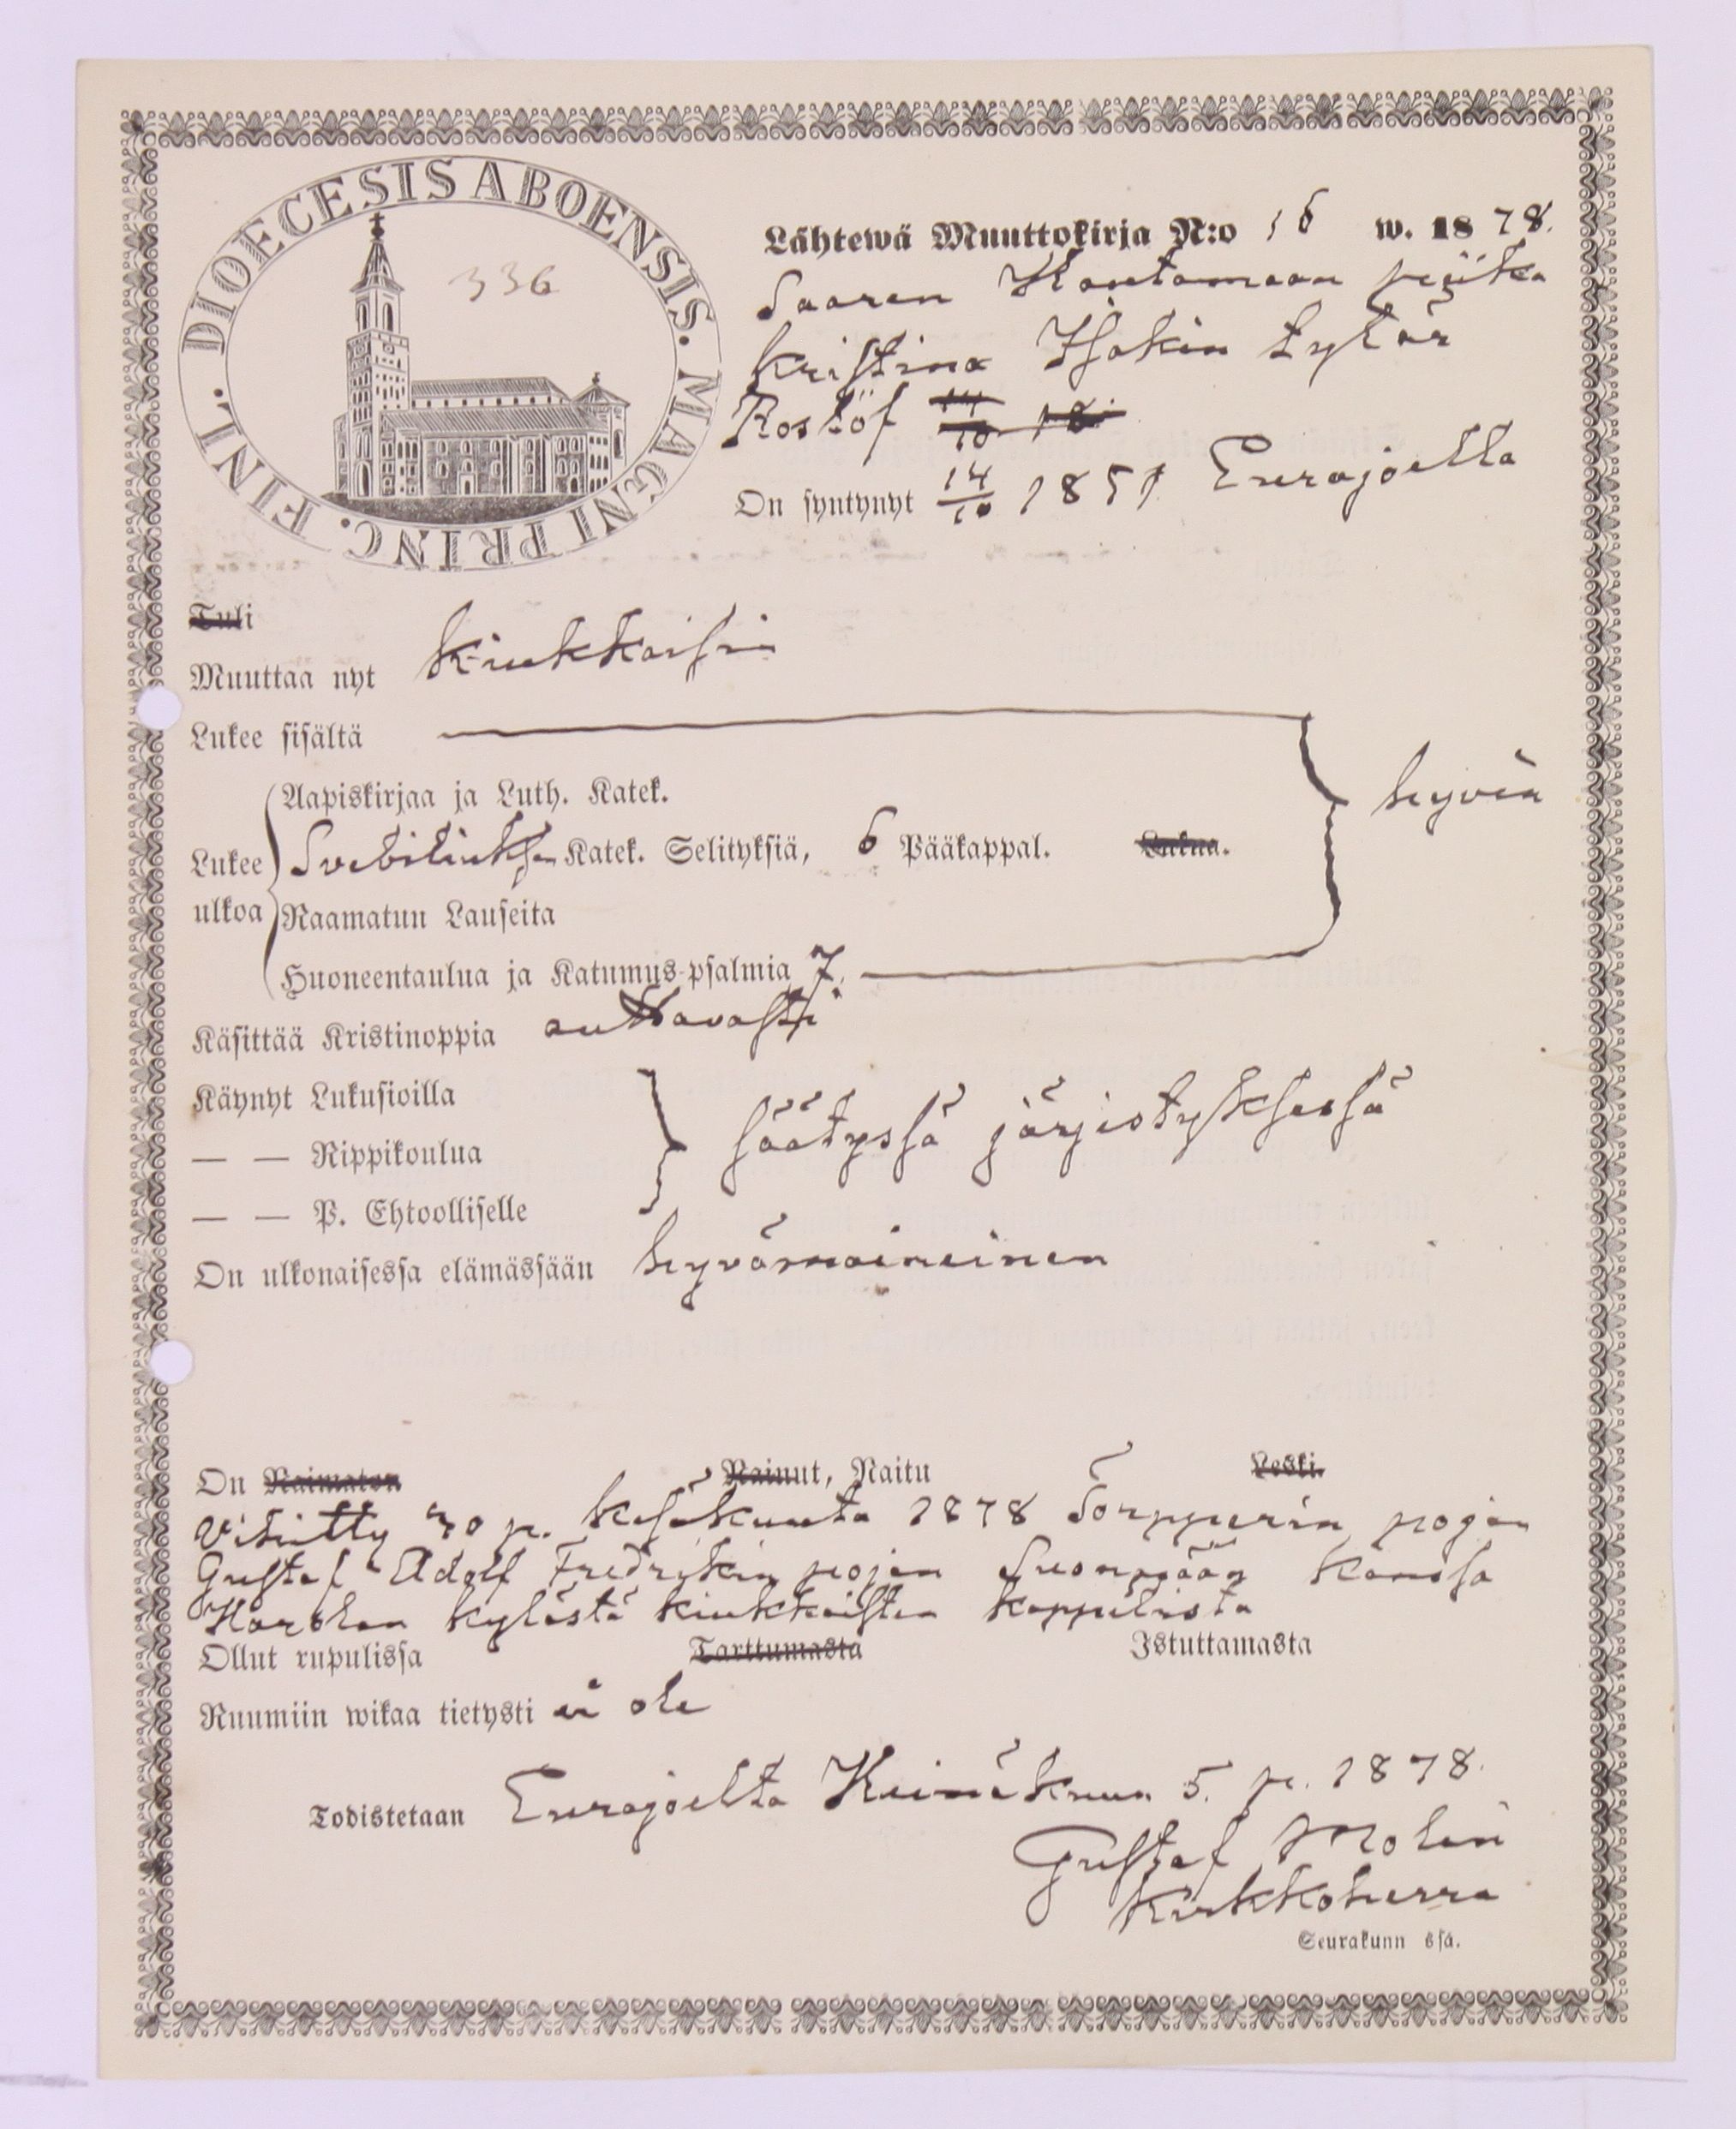 DIOECESIS ABOENSIS. MAGNI PRINC. FINL.
336
Lähtewä Muuttokirja N:o 16 w. 1878.
Saaren Hautamaan piika
Kristina Isakin tytär
Roslöf 14/10 18
On syntynyt 14/10 1857 Eurajoella
Tuli
Muuttaa nyt Kiukkaisiin
Lukee sisältä
Aapiskirjaa ja Luth. Katek.
hyvin
Lukee ulkoa Svebiliuksen Katek. Selityksiä, 6 Pääkappal. Lukua.
Raamatun Lauseita
Huoneentaulua ja Katumus-psalmia 7.
Käsittää Kristinoppia auttavasti
Käynyt Lukusioilla
— — Rippikoulua säätyssä järjestyksessä
— — P. Ehtoolliselle
On ulkonaisessa elämässään hyvämaineinen
On Naimaton Nainut, Naitu Leski.
Vihitty 30 p. Kesäkuuta 1878 Torpparin pojan
Gustaf Adolf Fredrikin pojan Suonpään kanssa
Harolan kylästä Kiukkaisten kappelista
Ollut rupulissa Tarttumasta Istuttamasta
Ruumiin wikaa tietysti ei ole
Todistetaan Eurajoelta Heinäkuun 5. p. 1878.
Gustaf Molin
Kirkkoherra
Seurakunn ssa.